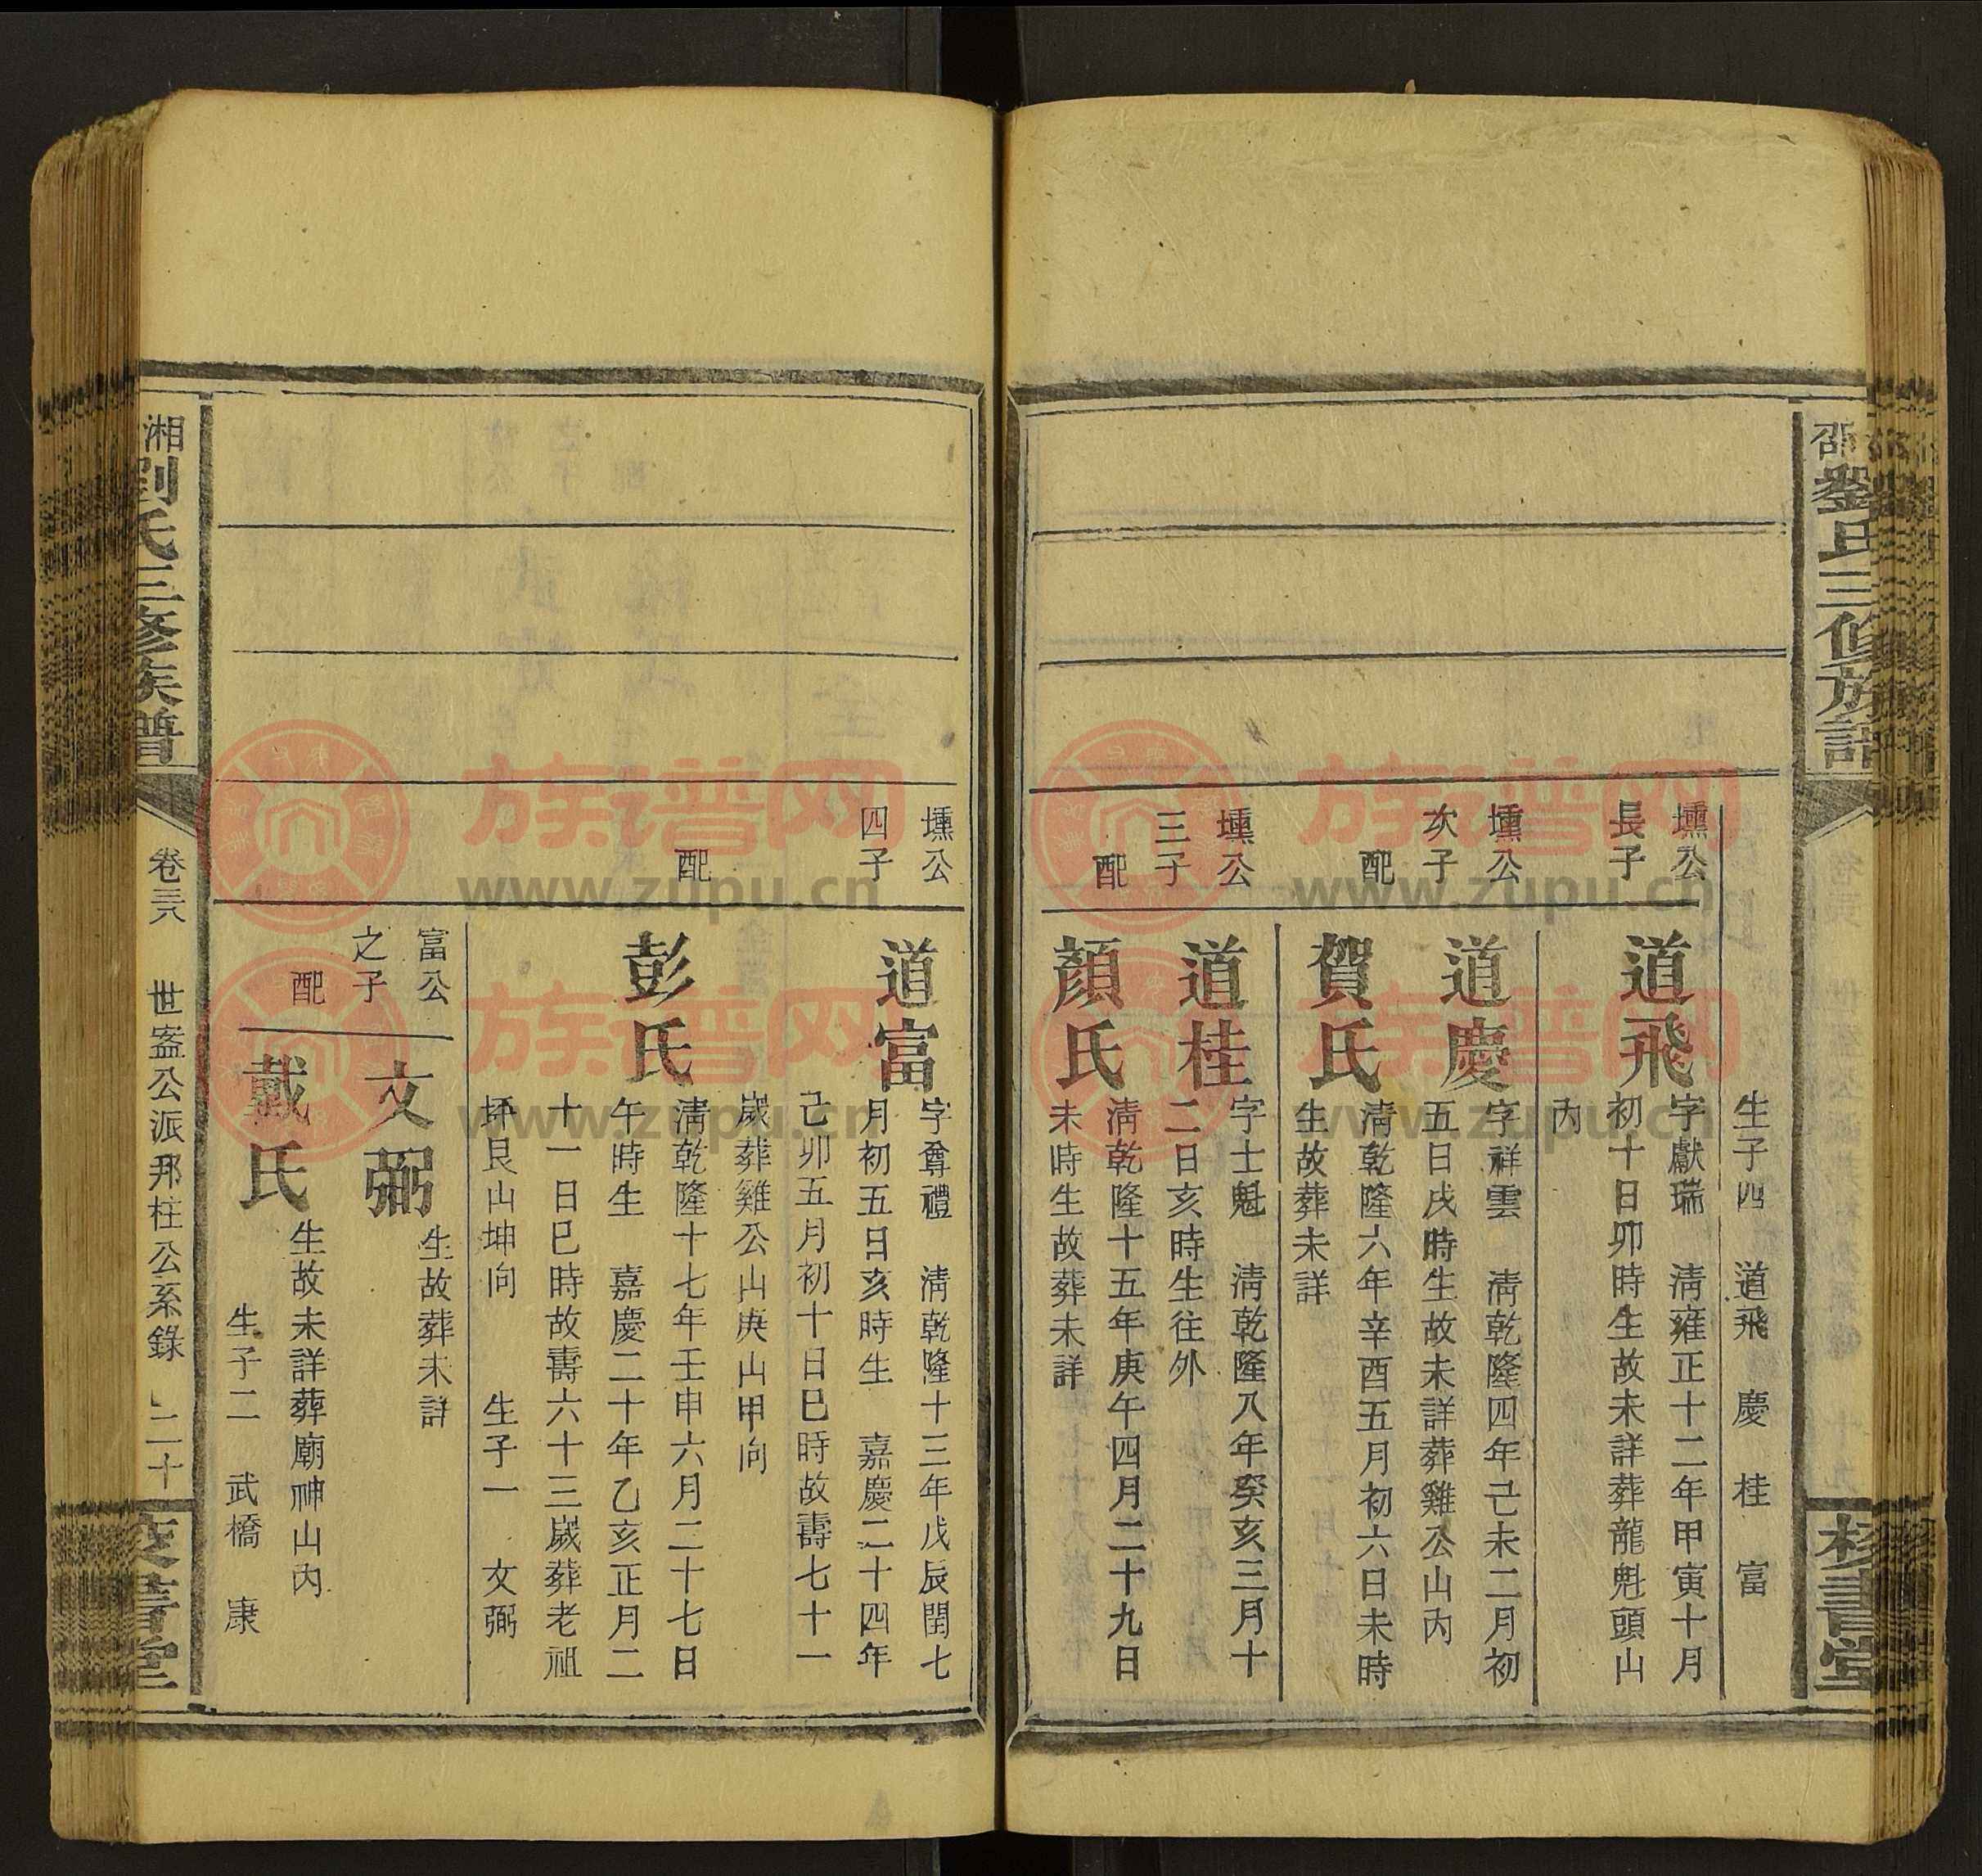 邵 劉氏三修族譜
桜書堂
生子四 道飛 慶 桂 富
壎公
長子
道飛
字獻瑞 淸雍正十二年甲寅十月
初十日卯時生故未詳葬龍魁頭山
內
壎公
次子
道慶
字祥雲 淸乾隆四年己未二月初
五日戌時生故未詳葬雞公山內
配
賀氏
淸乾隆六年辛酉五月初六日未時
生故葬未詳
壎公
三子
道桂
字士魁 淸乾隆八年癸亥三月十
二日亥時生往外
配
顏氏
淸乾隆十五年庚午四月二十九日
未時生故葬未詳
壎公
四子
道富
字尊禮 淸乾隆十三年戊辰閏七
月初五日亥時生 嘉慶二十四年
己卯五月初十日巳時故壽七十一
歲葬雞公山庚山甲向
配
彭氏
淸乾隆十七年壬申六月二十七日
午時生 嘉慶二十年乙亥正月二
十一日巳時故壽六十三歲葬老祖
坪艮山坤向 生子一 文弼
富公
之子
文弼
生故葬未詳
配
戴氏
生故未詳葬廟神山內
生子二 武橋 康
湘 劉氏三修族譜
卷三六 世盗公派邦柱公系錄 二十
書堂
族谱网
www.zupu.cn
族谱网
www.zupu.cn
族谱网
族谱网